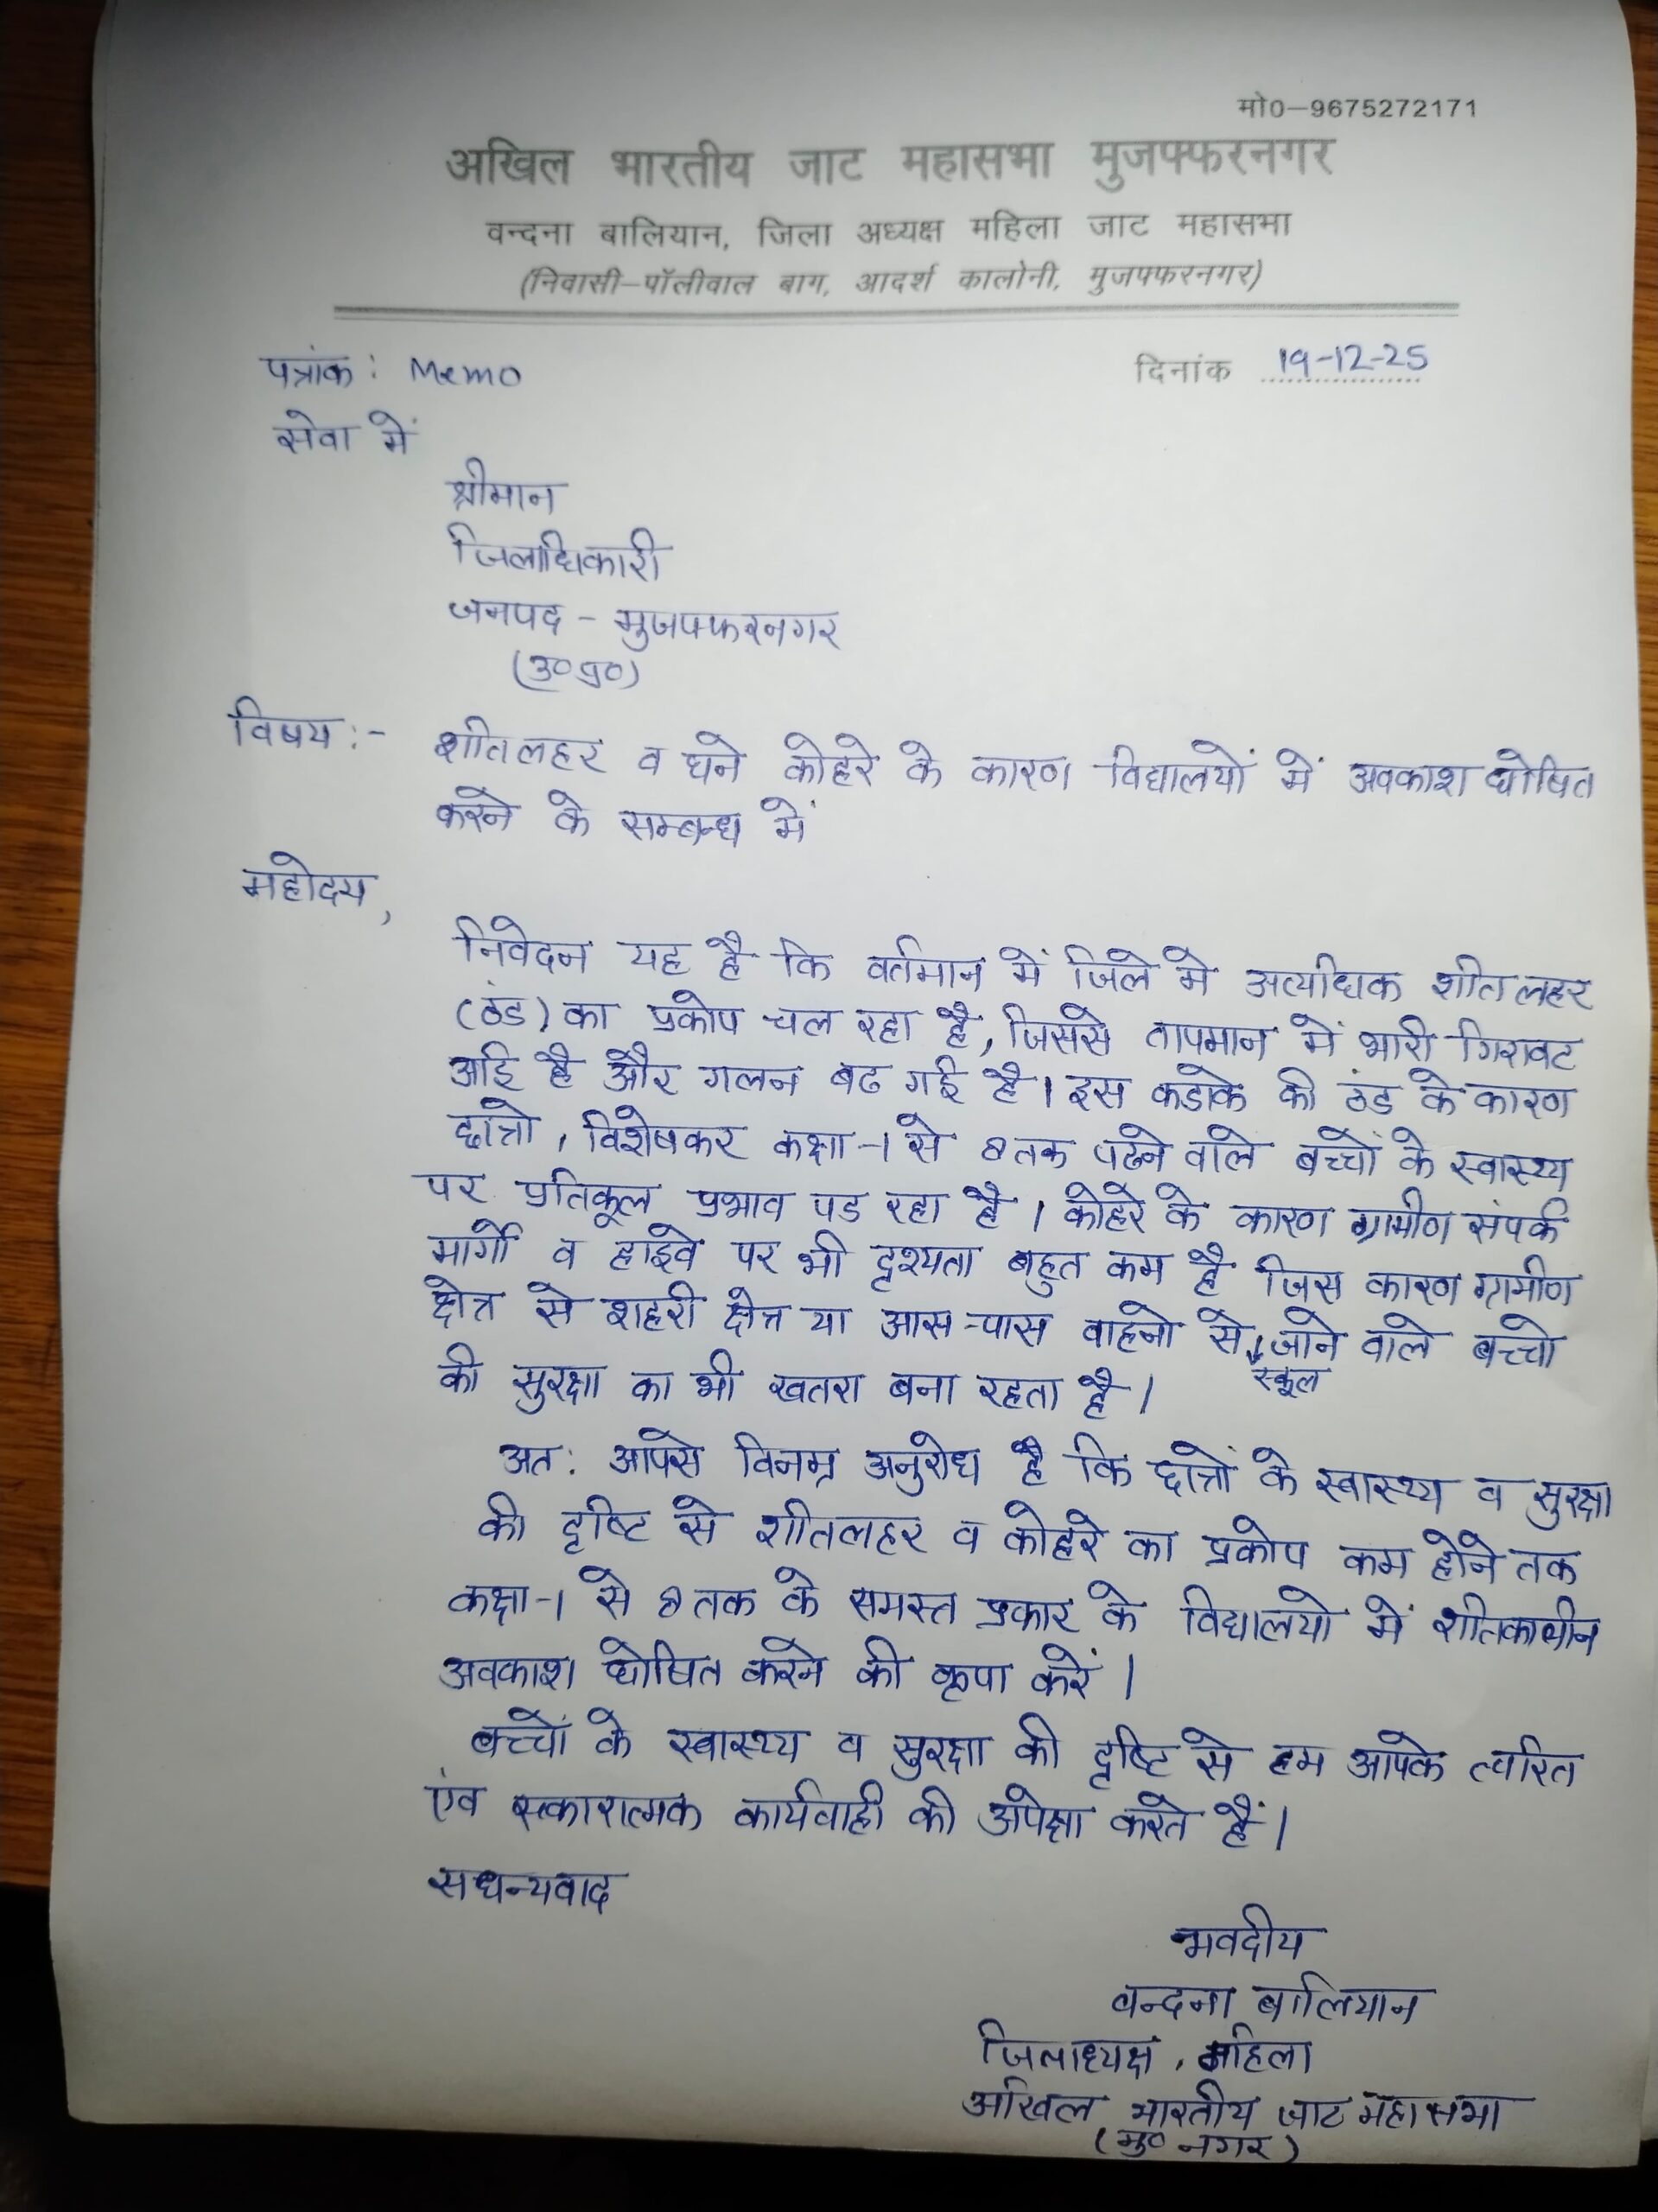 मो0–9675272171
अखिल भारतीय जाट महासभा मुजफ्फरनगर
वन्दना बालियान, जिला अध्यक्ष महिला जाट महासभा
(निवासी–पॉलीवाल बाग, आदर्श कालोनी, मुजफ्फरनगर)
पत्रांक : Memo दिनांक 19-12-25
सेवा में
श्रीमान
जिलाधिकारी
जनपद - मुजफ्फरनगर
(उ०प्र०)
विषय :- शीतलहर व घने कोहरे के कारण विद्यालयों में अवकाश घोषित
करने के सम्बन्ध में
महोदय,
निवेदन यह है कि वर्तमान में जिले मे अत्यधिक शीतलहर
(ठंड) का प्रकोप चल रहा है, जिससे तापमान में भारी गिरावट
आई है और गलन बढ गई है। इस कडाके की ठंड के कारण
छात्रो, विशेषकर कक्षा-1 से 8 तक पढने वाले बच्चों के स्वास्थ्य
पर प्रतिकूल प्रभाव पड रहा है। कोहरे के कारण ग्रामीण संपर्क
मार्गो व हाइवे पर भी दृश्यता बहुत कम है जिस कारण ग्रामीण
क्षेत्र से शहरी क्षेत्र या आस-पास वाहनो से स्कूल जाने वाले बच्चो
की सुरक्षा का भी खतरा बना रहता है।
अत: आपसे विनम्र अनुरोध है कि छात्रों के स्वास्थ्य व सुरक्षा
की दृष्टि से शीतलहर व कोहरे का प्रकोप कम होने तक
कक्षा-1 से 8 तक के समस्त प्रकार के विद्यालयो में शीतकालीन
अवकाश घोषित करने की कृपा करें।
बच्चों के स्वास्थ्य व सुरक्षा की दृष्टि से हम आपके त्वरित
एंव सकारात्मक कार्यवाही की अपेक्षा करते हैं।
सधन्यवाद
भवदीय
वन्दना बालियान
जिलाध्यक्ष, महिला
अखिल भारतीय जाट महासभा
(मु० नगर)